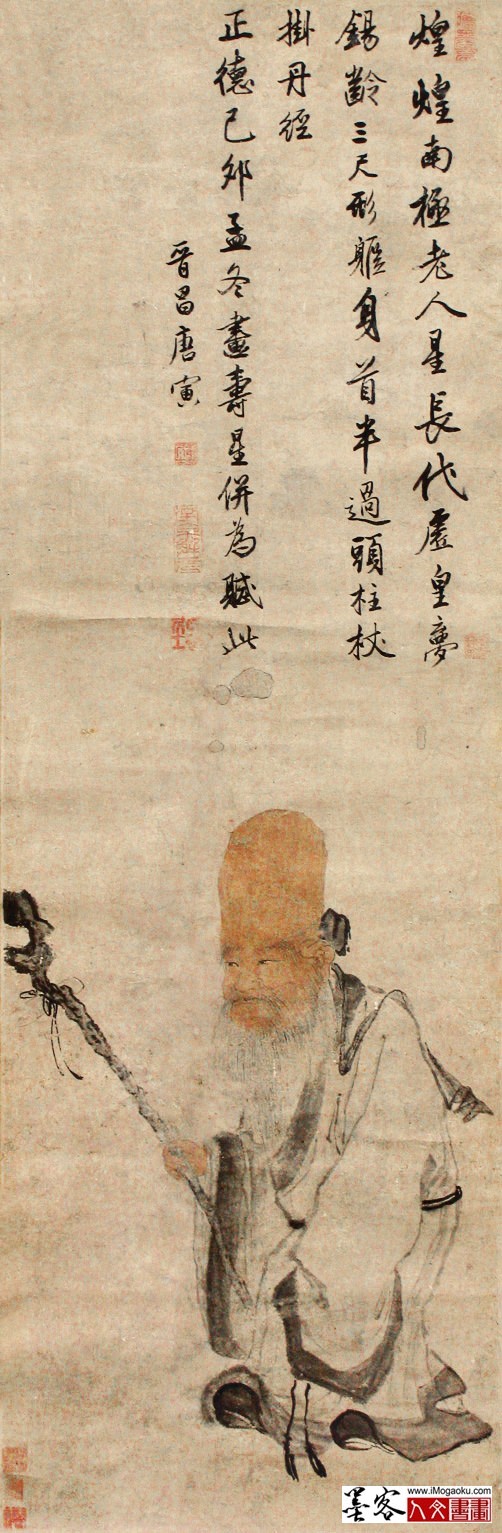 煌煌南極老人星長代虛皇夢
錫齡三尺形軀身首半過頭柱杖
掛丹經
正德己卯孟冬畫壽星併為賦此
晉昌唐寅
墨客
www.iMogaoku.com
人文書畫